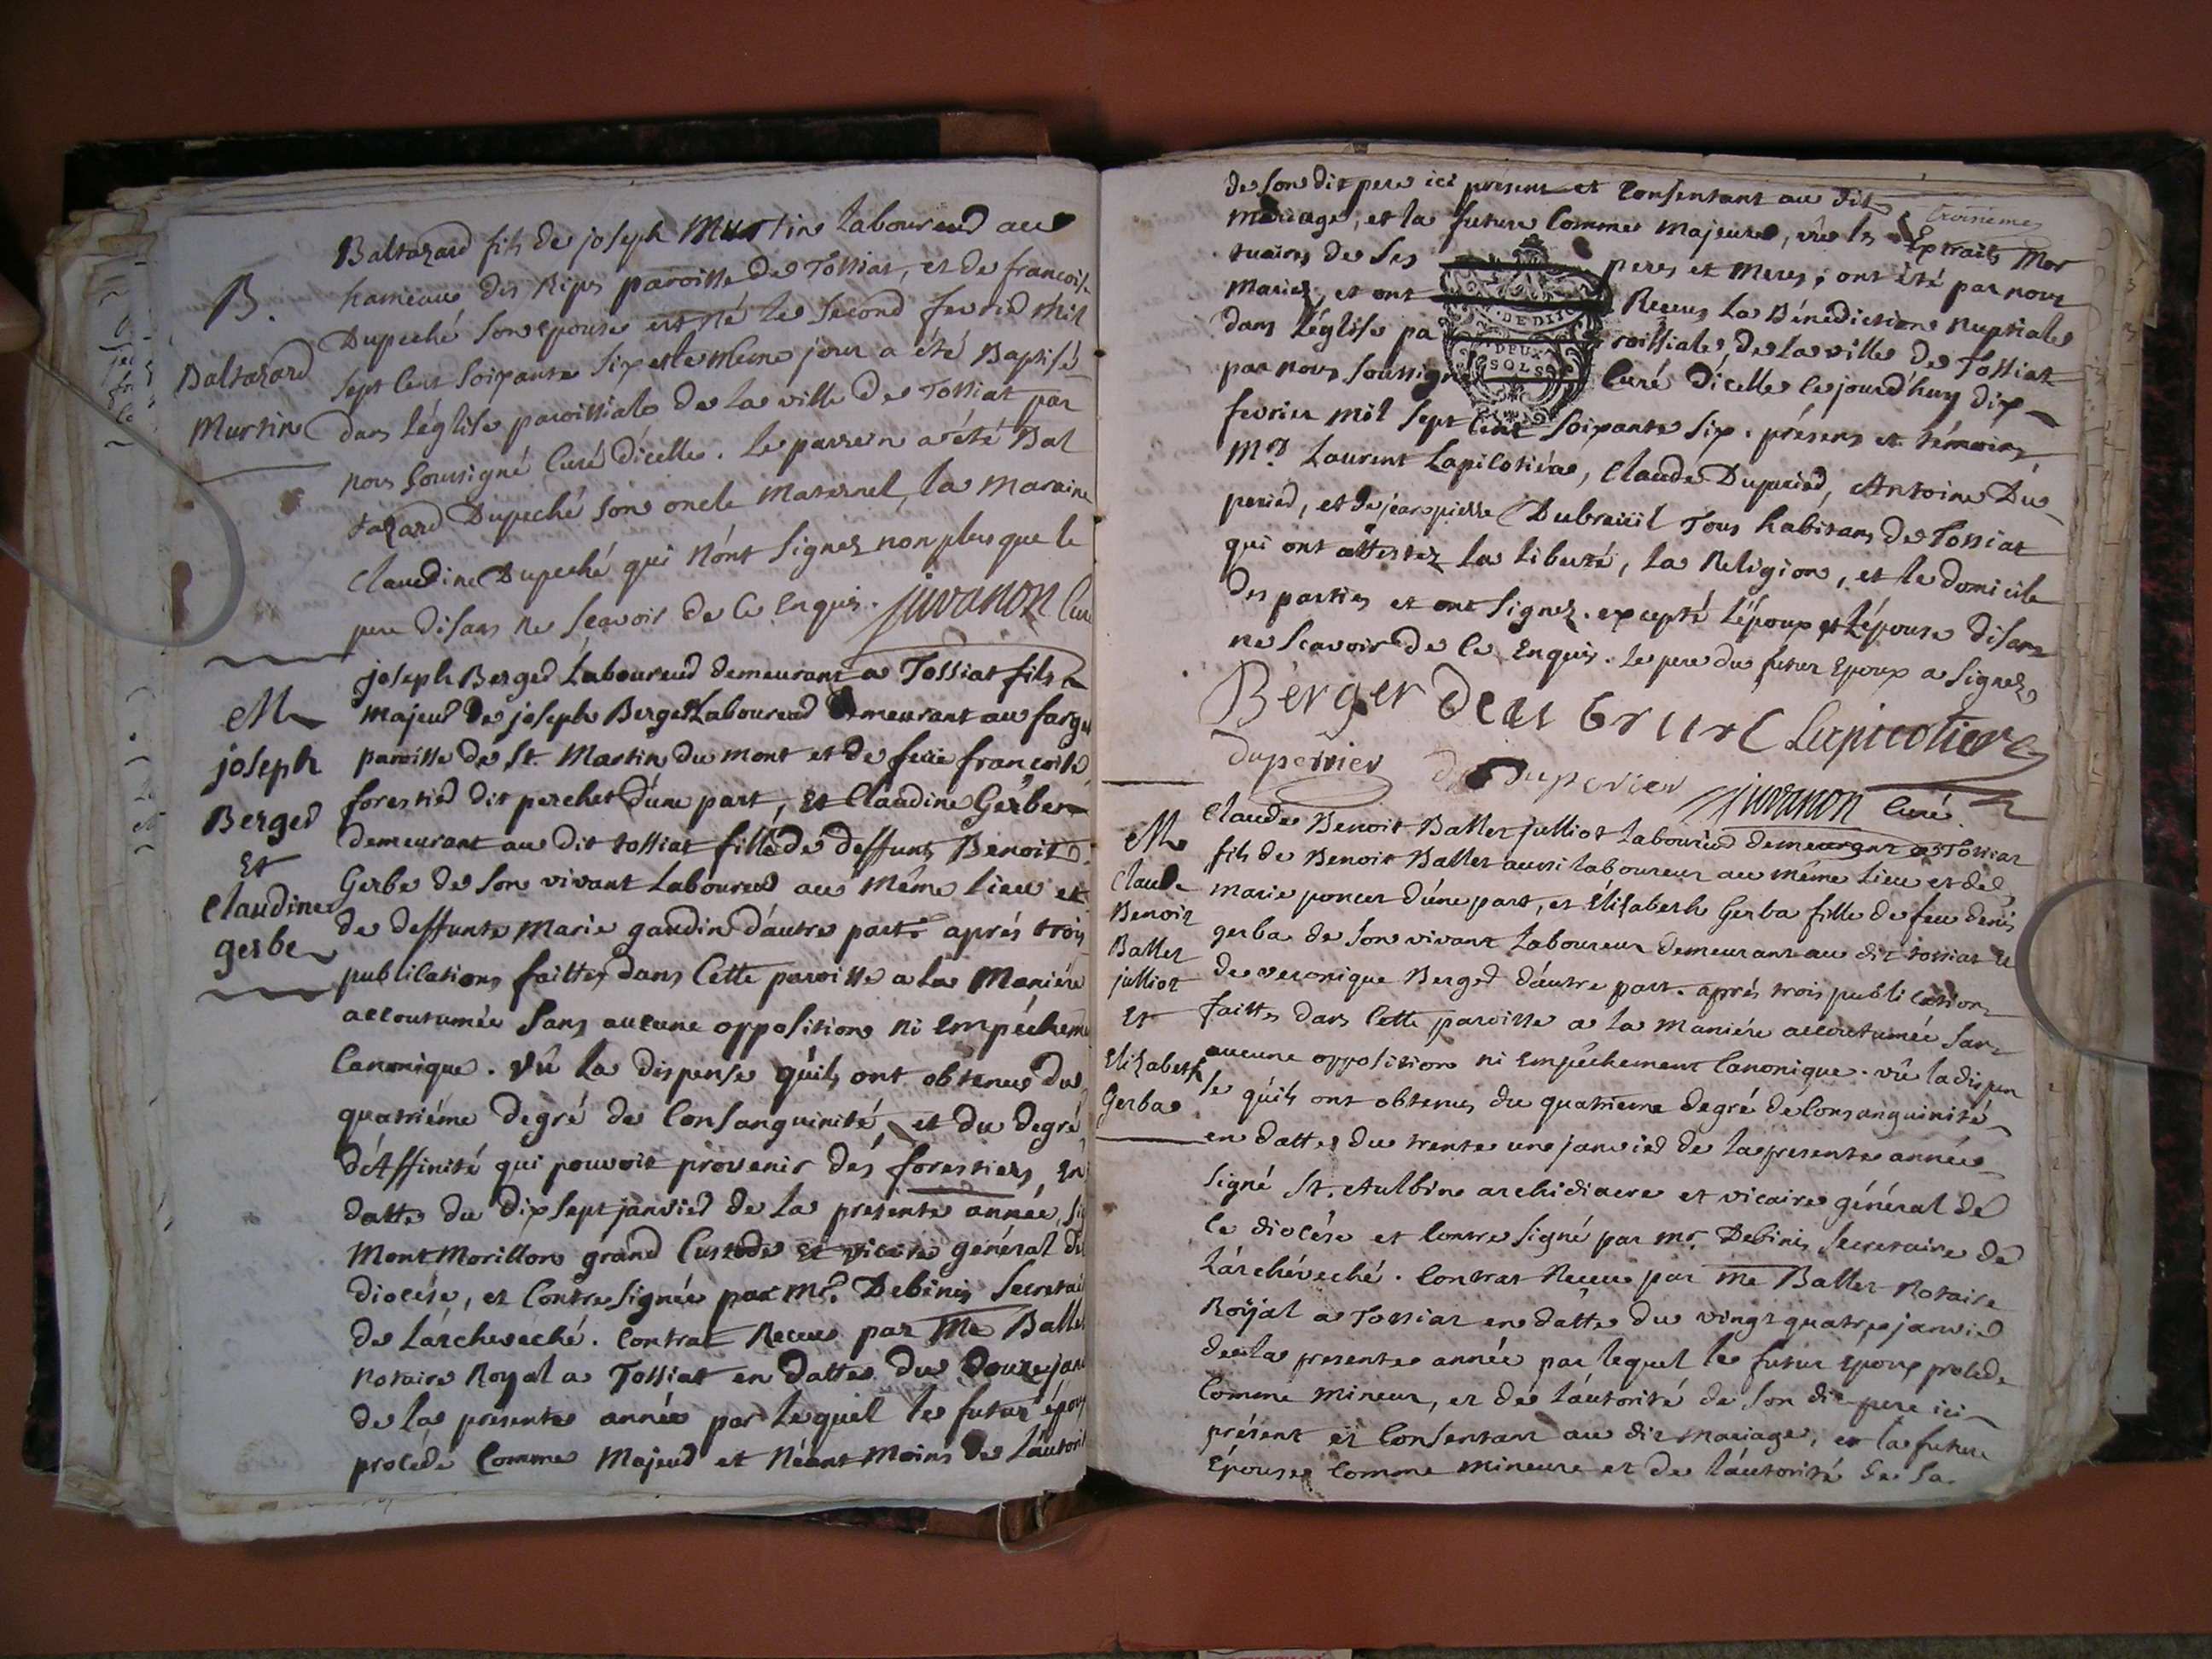 B.
Baltazard
Murtin
Baltazard fils de joseph Murtin Laboureur au
hameau des Ripes paroisse de Tossiat, et de francoise
Dupeché son epouse est né le second fevrier mil
sept cent soixante six et le même jour a été Baptisé
dans l'église paroissiale de la ville de Tossiat par
nous soussigné Curé d'icelle. Le parrein a été Bal
tazard Dupeché son oncle maternel, la maraine
Claudine Dupeché qui n'ont signez non plus que le
pere disans ne sçavoir de ce Enquis. juvanon Curé
M
joseph
Berger
Et
Claudine
gerbe
joseph Berger Laboureur demeurant a Tossiat fils
majeur de joseph Berger Laboureur demeurant au farge
paroisse de St. Martin du mont et de feüe françoise
forestier dit perchet d'une part, et Claudine Gerbe
demeurant au dit tossiat fille de deffunt Benoit
Gerbe de son vivant Laboureur au même lieu et
de deffunte Marie gaudin d'autre part. aprés trois
publications faittes dans cette paroisse a la maniére
accoutumée sans aucune opposition ni Empêcheme
Canonique. vû la dispense qu'ils ont obtenue du
quatriéme degré de Consanguinité, et du degré
d'Affinité qui pouvoit provenir des forestiers, en
datte du dix sept janvier de la presente année, sig
MontMorillon grand Custode et vicaire général du
diocése, et Contresignée par mr. Debinis Secretai
de l'archevêché. Contrat Receu par me Ballet
notaire Royal a Tossiat en datte du douze janv
de la presente année par lequel le futur époux
procéde Comme majeur et Néantmoins de l'autorit
troisieme
de son dit pere ici présent et Consentant au dit
mariage, et la future Comme majeure, vû les Extraits mor
tuaires de ses peres et meres; ont été par nous
mariez, et ont Receus la Bénédiction nuptiale
dans l'église paroissiale de la ville de Tossiat
par nous soussigné Curé d'icelle cejourd'huy dix
DEDIT
DEUX
SOLS
fevrier mil sept cent soixante six. présens et témoins
Mr. Laurent Lapicotiére, Claude Duperier, Antoine Du
perier, et de jean pierre Dubreüil Tous habitans de Tossiat
qui ont attestez la liberté, la Religion, et le domicile
des parties et ont signez. excepté l'époux et l'épouse disans
ne sçavoir de ce Enquis. Le pere du futur Epoux a signez
Bèrger Lapicotiere
duperrier duperier juvanon Curé.
M
Claude
Benoit
Ballet
julliot
Et
Elizabeth
Gerba
Claude Benoit Ballet julliot Laboureur demeurant a Tossiat
fils de Benoit Ballet aussi laboureur au même lieu et de
marie poncet d'une part, et Elizabeth Gerba fille de feu denis
gerba de son vivant Laboureur demeurant au dit tossiat et
de veronique Berger d'autre part. aprés trois publication
faittes dans cette paroisse a la maniére accoutumée sans
aucune opposition ni Empêchement Canonique. vû la dispen
se qu'ils ont obtenus du quatrieme degré de Consanguinité
en datte du trente un janvier de la presente année
signé St. Aulbin archidiacre et vicaire général de
ce diocése et Contresigné par mr. Debinis secretaire de
L'archévêché. Contrat Receu par me Ballet Notaire
Royal a Tossiat en datte du vingt quatre janvier
de la presente année par lequel le futur Epoux procede
Comme mineur, et de l'autorité de son dit pere ici
présent et Consentant au dit mariage, et la future
Epouse Comme mineure et de l'autorité de sa